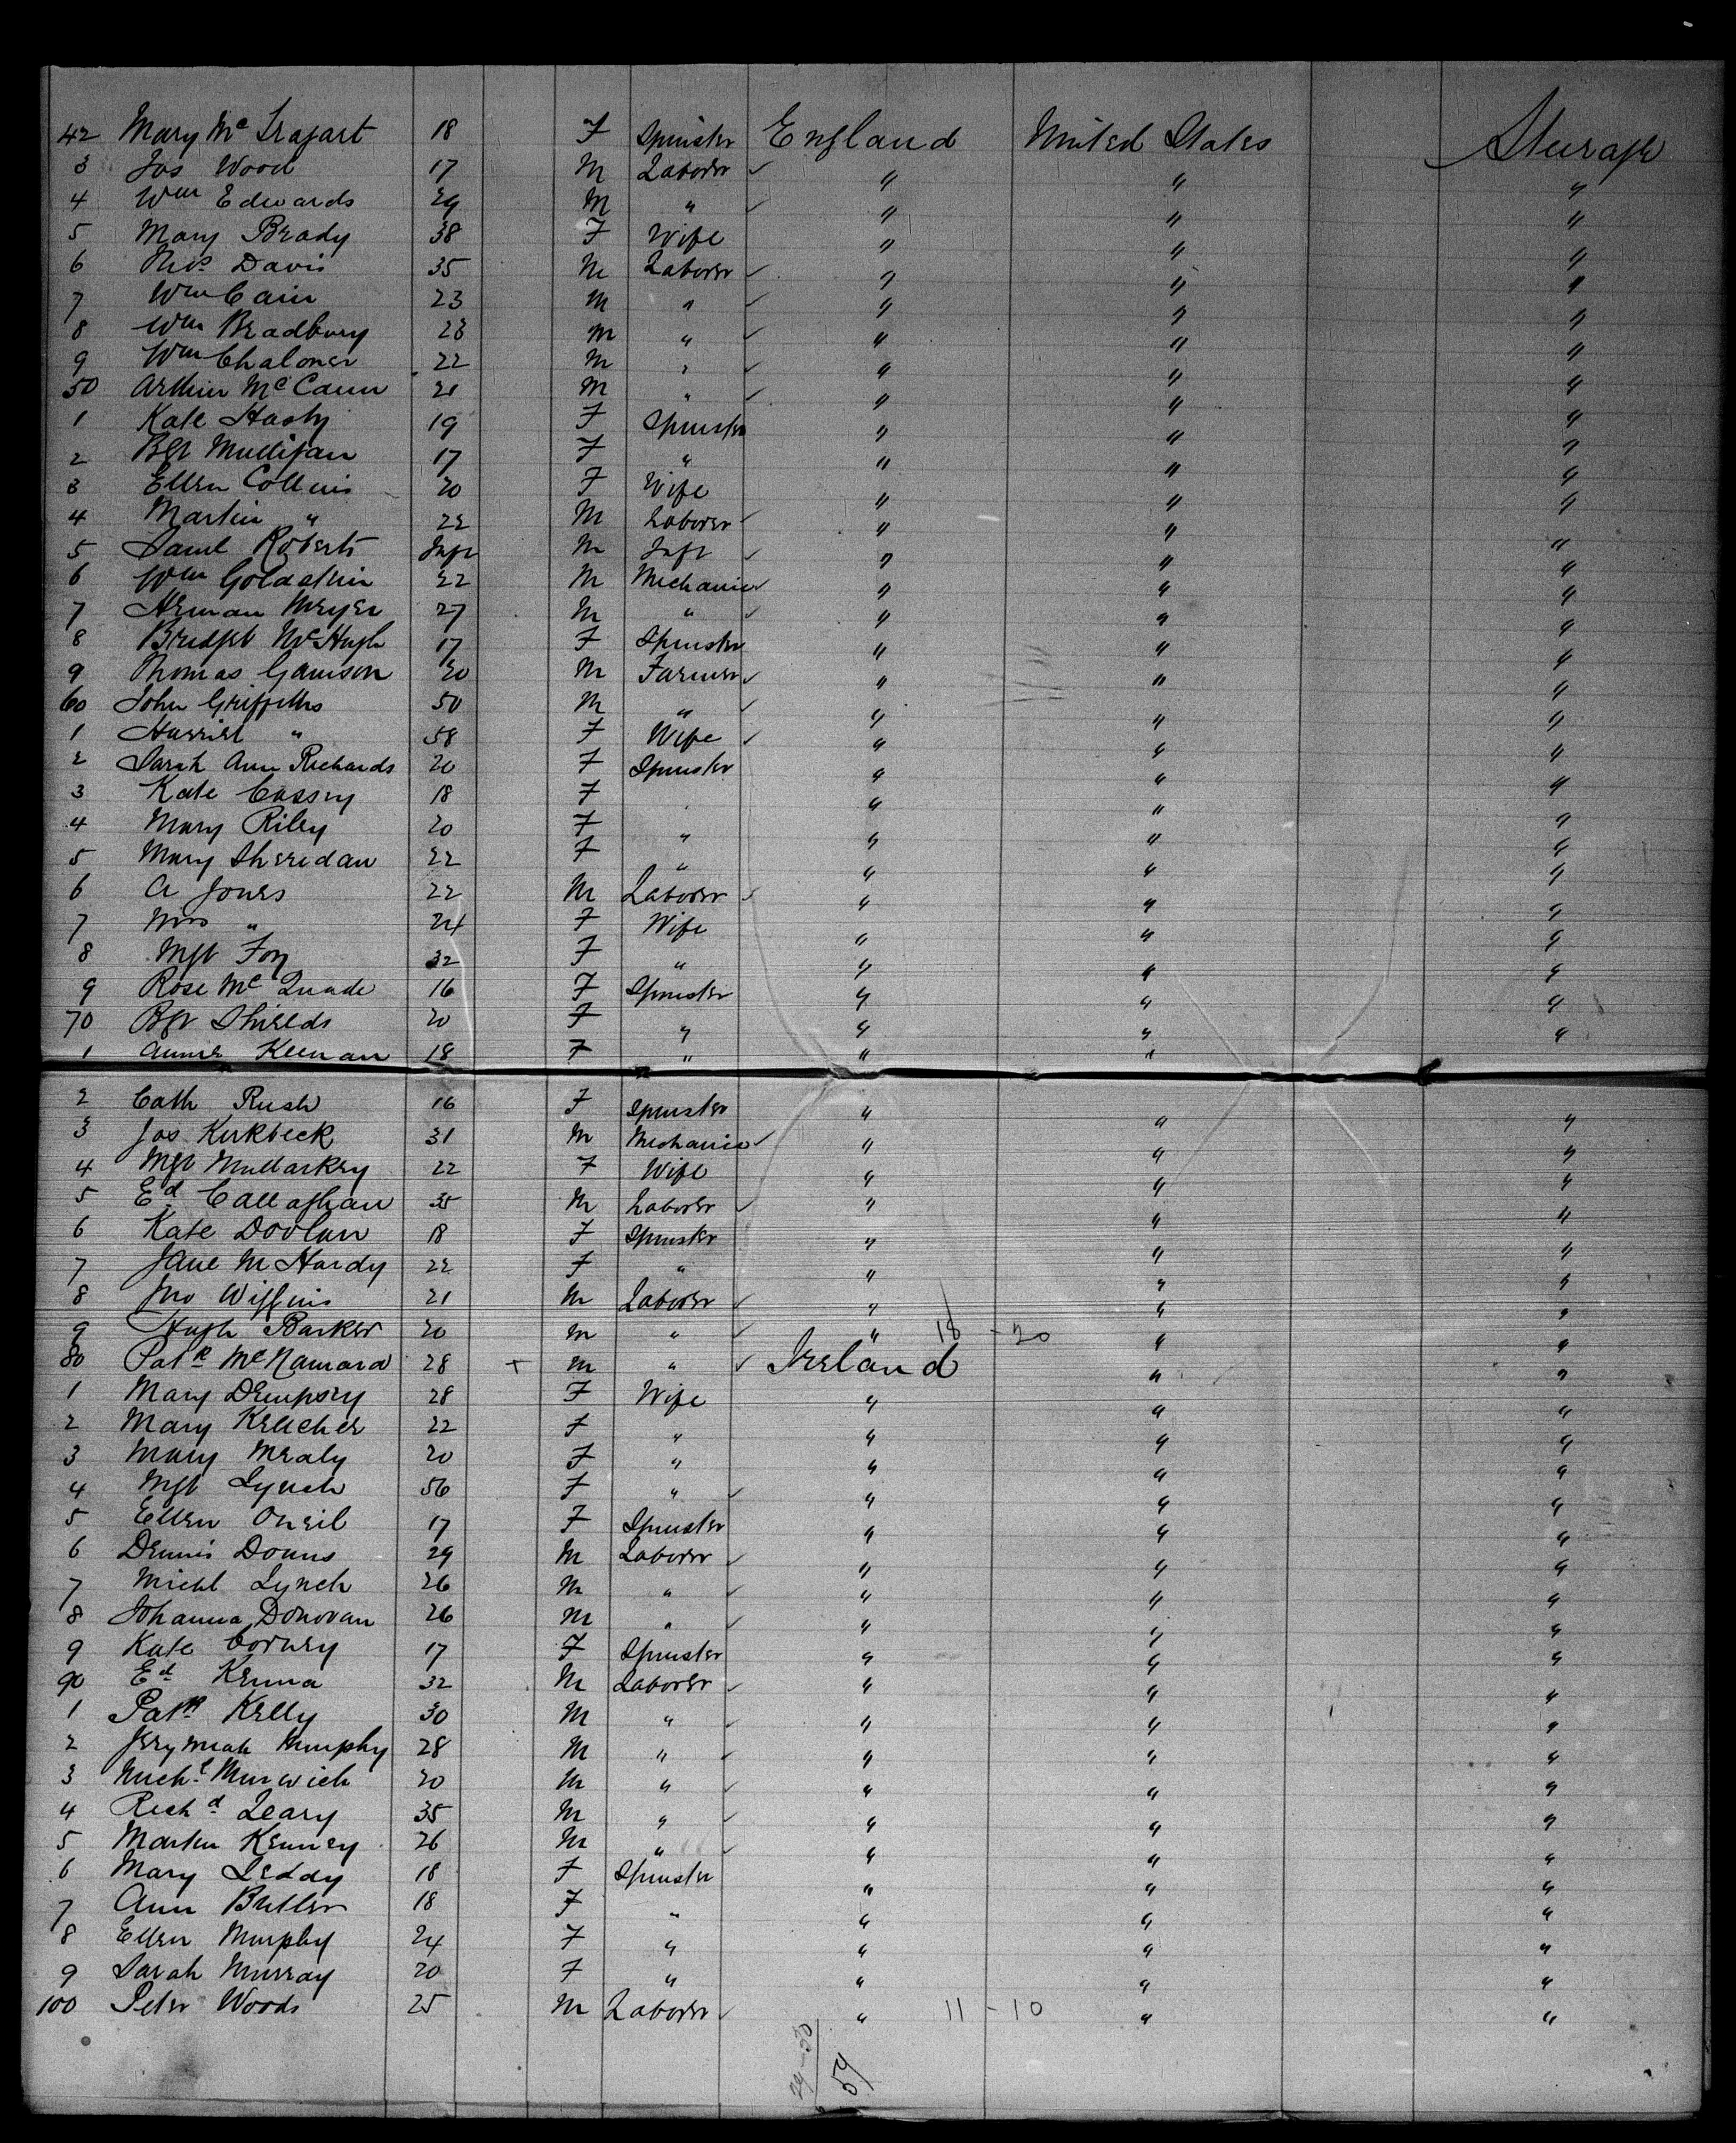 42 Mary Mc Tragart 18 F Spinster England United States Steerage
3 Jos Wood 17 M Laborer ✓ " " "
4 Wm Edwards 29 M " ✓ " " "
5 Mary Brady 38 F Wife " " "
6 Thos Davis 35 M Laborer ✓ " " "
7 Wm Cain 23 M " ✓ " " "
8 Wm Bradbury 23 M " ✓ " " "
9 Wm Chaloner 22 M " ✓ " " "
50 Arthur Mc Cann 21 M " ✓ " " "
1 Kate Hasty 19 F Spinster " " "
2 Bgt Mulligan 17 F " " " "
3 Ellen Collins 20 F Wife " " "
4 Martin " 22 M Laborer ✓ " " "
5 Saml Roberts Inft M Inft ✓ " " "
6 Wm Goldstein 22 M Mechanic ✓ " " "
7 Herman Meyer 27 M " ✓ " " "
8 Bridget McHugh 17 F Spinster " " "
9 Thomas Gamson 30 M Farmer ✓ " " "
60 John Griffiths 50 M " ✓ " " "
1 Harriet " 58 F Wife ✓ " " "
2 Sarah Ann Richards 20 F Spinster " " "
3 Kate Cassey 18 F " " " "
4 Mary Riley 20 F " " " "
5 Mary Sheridan 22 F " " " "
6 A Jones 22 M Laborer ✓ " " "
7 Mrs " 24 F Wife " " "
8 Mgt Foy 32 F " " " "
9 Rose Mc Quade 16 F Spinster " " "
70 Bgt Shields 20 F " " " "
1 Annie Keenan 18 F " " "
2 Cath Rush 16 F Spinster " " "
3 Jos Kirkbeck 31 M Mechanic ✓ " " "
4 Mgt Mullarkey 22 F Wife " " "
5 Ed Callaghan 35 M Laborer ✓ " " "
6 Kate Doolan 18 F Spinster " " "
7 Jane M Hardy 22 F " " " "
8 Jno Wiggins 21 M Laborer ✓ " " "
9 Hugh Barker 20 M " ✓ " 18 - 20 " "
80 Patk McNamara 28 + M " ✓ Ireland " "
1 Mary Dempsey 28 F Wife " " "
2 Mary Kelleher 22 F " " " "
3 Mary Mealy 20 F " " " "
4 Mgt Lynch 56 F " ✓ " " "
5 Ellen Oneil 17 F Spinster " " "
6 Dennis Downs 29 M Laborer ✓ " " "
7 Michl Lynch 26 M " ✓ " " "
8 Johanna Donovan 26 M " ✓ " " "
9 Kate Corney 17 F Spinster " " "
90 Ed Kenna 32 M Laborer ✓ " " "
1 Patk Kelly 30 M " ✓ " " "
2 Jerymiah Murphy 28 M " ✓ " " "
3 Michl 20 M " ✓ " " "
4 Richd Leary 35 M " ✓ " " "
5 Martin Kenney 26 M " ✓ " " "
6 Mary Leddy 18 F Spinster " " "
7 Ann Butler 18 F " " " "
8 Ellen Murphy 24 F " " " "
9 Sarah Murray 20 F " " " "
100 Peter Woods 25 M Laborer ✓ " 11 - 10 " "
29-30
59